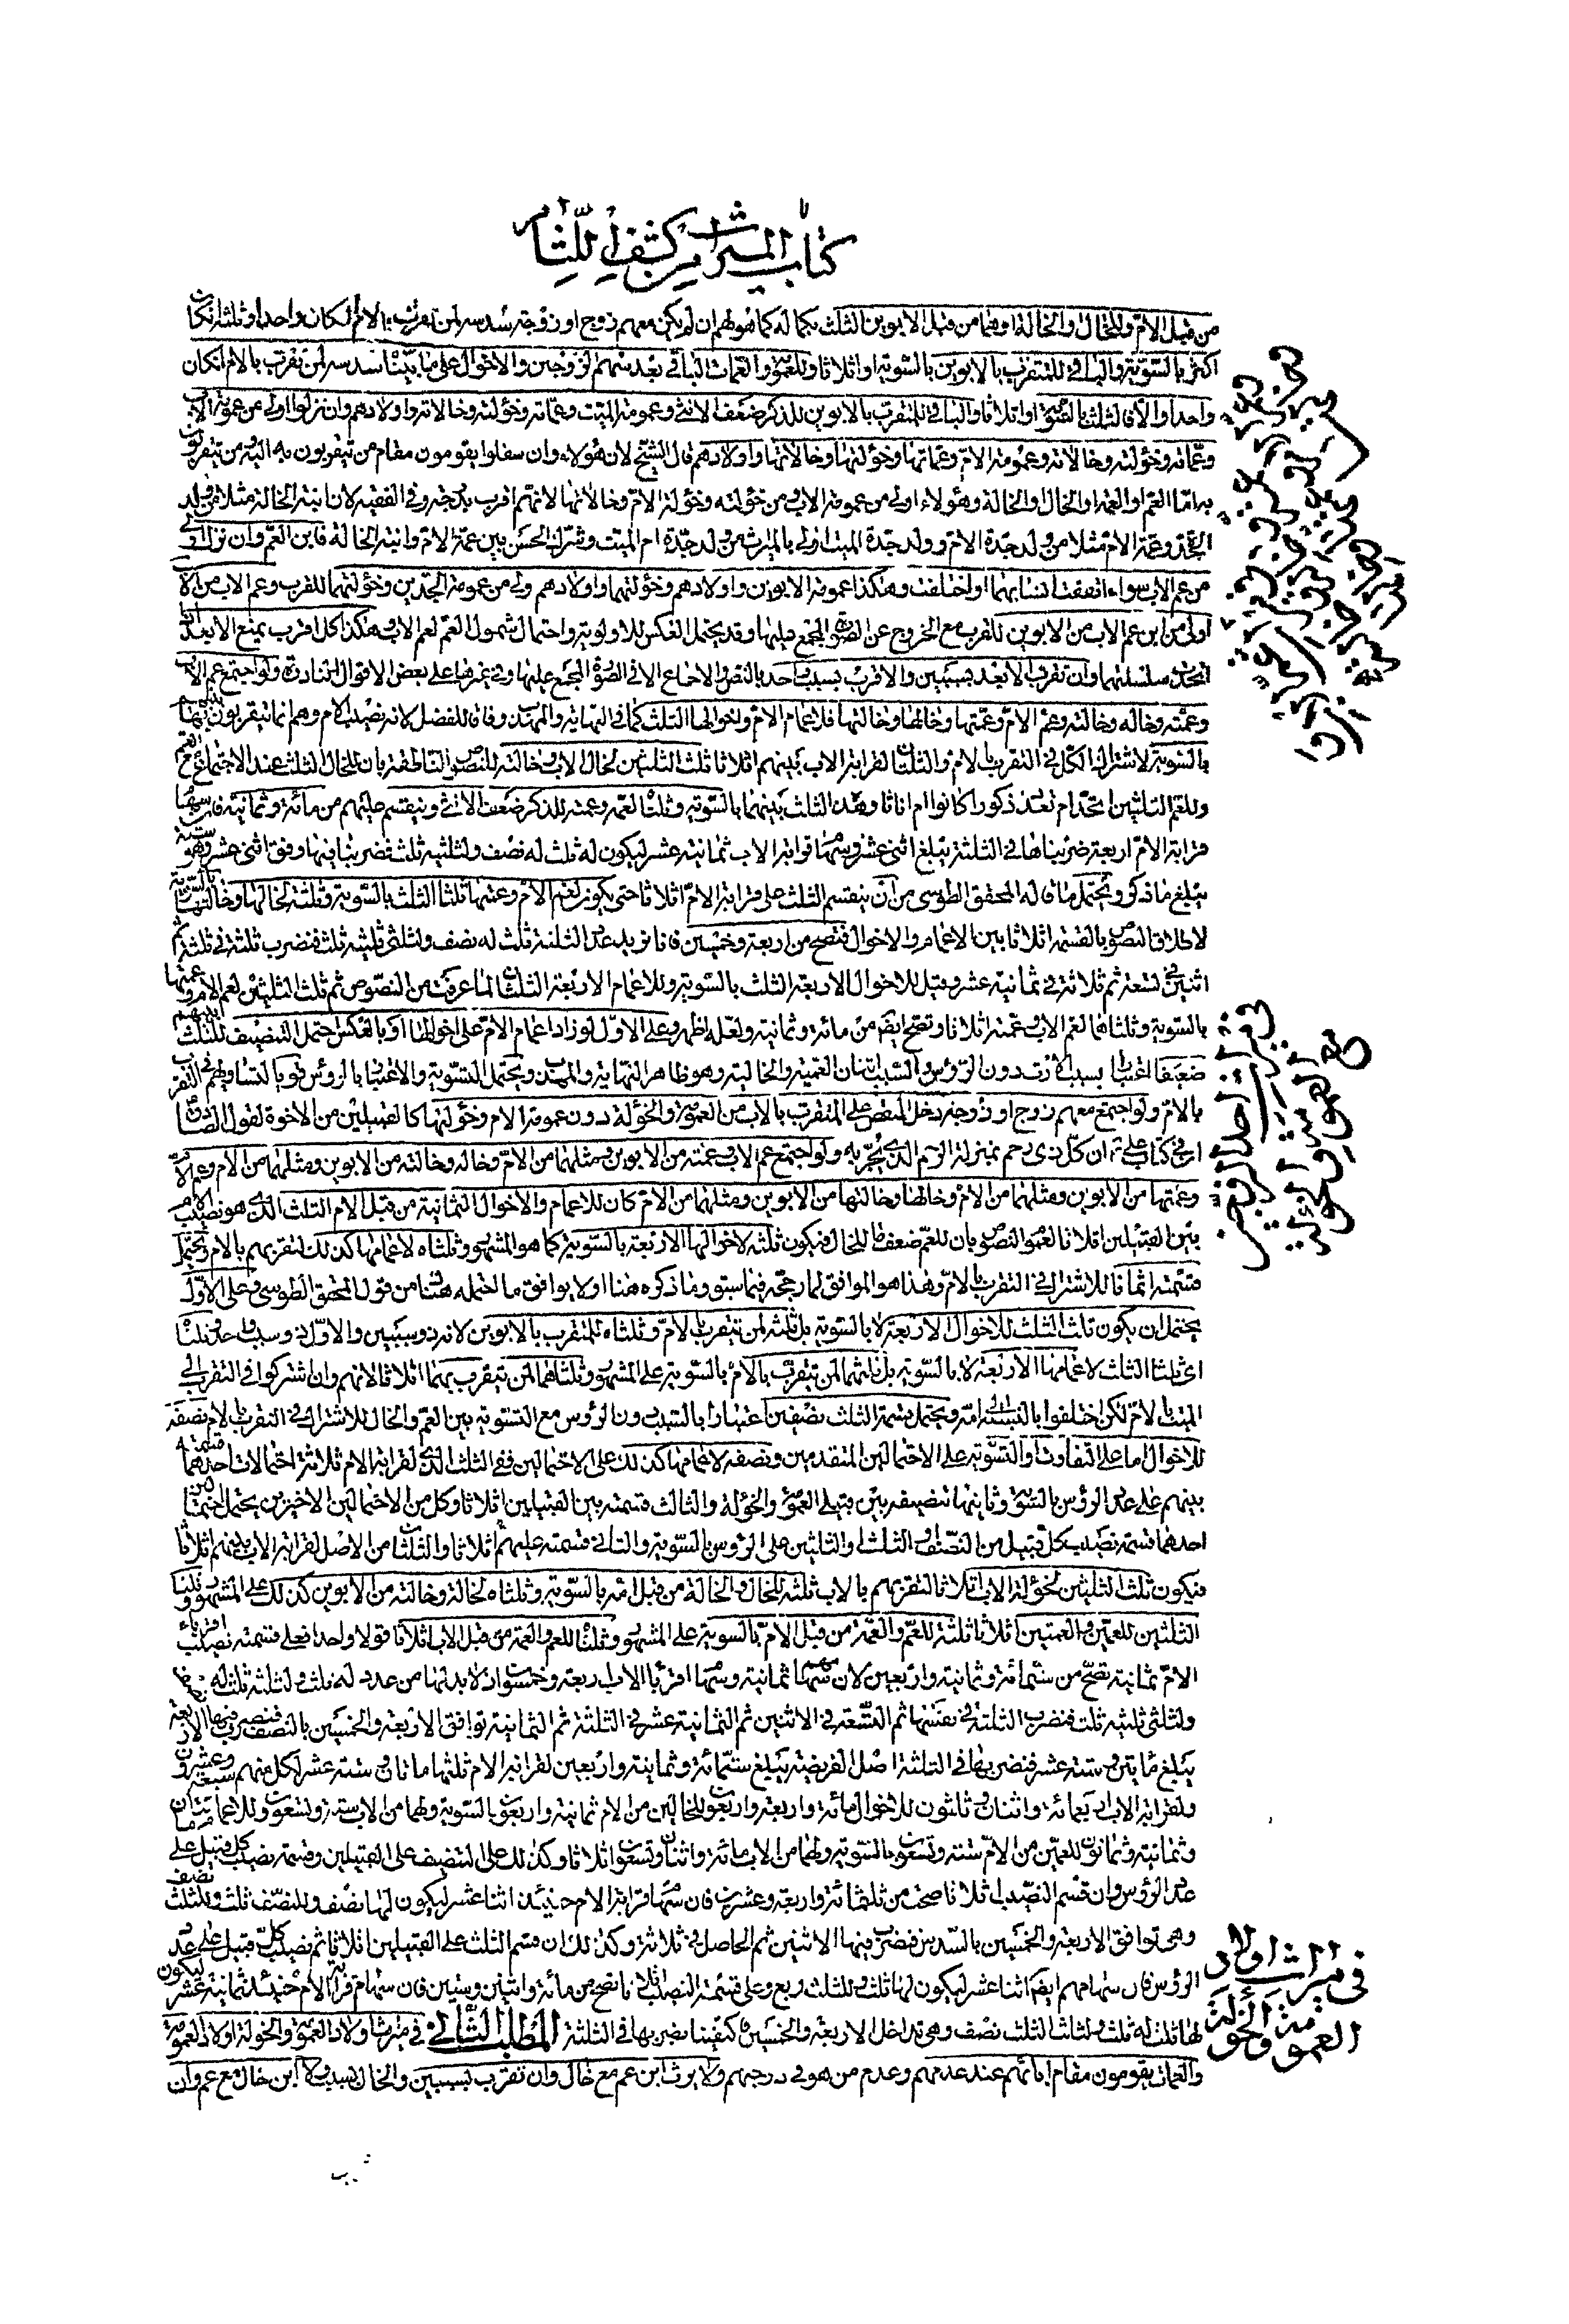 كتاب الميراث من كشف اللثام
من قبل الامّ وللخال والخالة او هما من قبل الابوين الثلث بكماله كما هو لهم ان لم يكن معهم زوج او زوجة سدسه لمن تقرب بالامّ ان كان واحدا وثلثه ان كان
اكثر بالسّوية والباقي للمتقرب بالابوين بالسّوية او اثلاثا وللعمومة والعمات الباقي بعد سهم الزوجين والاخوال على ما بيّنا سدسه لمن تقرب بالام ان كان
واحدا والّا فالثلث بالسوية او اثلاثا والباقي للمتقرب بالابوين للذكر ضعف الانثى وعمومة الميّت وعماته وخؤلته وخالاته واولادهم وان نزلوا اولى من عمومة الاب
وعمّاته وخؤلته وخالاته وعمومة الامّ وعماتها وخؤلتها وخالاتها واولادهم قال الشيخ لان هؤلاء وان سفلوا يقومون مقام من يتقربون به اليه من يتقربون
به امّا العم او العمة او الخال او الخالة وهؤلاء اولى من عمومة الاب ومن خؤلته وخؤلة الامّ وخالاتها لانهم اقرب بدرجة وفي الفقيه لان ابنة الخالة مثلا من ولد
الجدّة وعمة الامّ مثلا من ولد جدّة الامّ وولد جدّة الميّت اولى بالميراث من ولد جدّة ام الميّت وشرك الحسن بين عمة الامّ وابنة الخالة فابن العمّ وان نزل اولى
من عم الاب سواء اتفقت انسابهما او اختلفت وهكذا عمومة الابوين واولادهم وخؤلتهما واولادهم اولى من عمومة الجدين وخؤلتهما للقرب وعم الاب من الاب
اولى من ابن عم الاب من الابوين للقرب مع الخروج عن الصورة المجمع عليها وقد يحتمل العكس للاولوية واحتمال شمول العمّ لعم الاب وهكذا كل اقرب يمنع الابعد ان
اتحدت سلسلتهما وان تقرب الابعد بسببين والاقرب بسبب واحد بالنصّ والاجماع الا في الصّورة المجمع عليها وفي غيرها على بعض الاقوال النادرة ولو اجتمع عم الاب
وعمّته وخاله وخالته وعم الامّ وعمّتها وخالها وخالتها فلاعمام الامّ واخوالها الثلث كما في النهاية والمهذب وفاقا للفضل لانه نصيب الام وهم انما يتقربون بها بينهم
بالسّوية لاشتراك الكل في التقرب بالامّ والثلثان لقرابة الاب بينهم اثلاثا ثلث الثلثين لخال الاب وخالته للنصوص الناطقة بان للخال الثلث عند الاجتماع مع العم
وللعم الثلثين اتحدا ام تعدد ذكورا كانوا ام اناثا وهذا الثلث بينهما بالسّوية وثلثا لعمه وعمته للذكر ضعف الانثى وينقسم عليهم من مائة وثمانية فان سهام
قرابة الامّ اربعة ضربناها في الثلثة يبلغ اثنى عشر وسهام قرابة الاب ثمانية عشر ليكون له ثلث له نصف ولثلثيه ثلث فضربنا فيها وفق اثنى عشر وهو ستة
يبلغ ما ذكر ويحتمل ما قاله المحقق الطوسي من ان ينقسم الثلث على قرابة الامّ اثلاثا حتى يكون لعم الامّ وعمتها ثلثا الثلث بالسّوية وثلثه لخالها وخالتها بالسّوية
لاطلاق النصوص بالقسمة اثلاثا بين الاعمام والاخوال فتصح من اربعة وخمسين فانا نريد عدد الثلثة ثلث له نصف ولثلثي ثلثيه ثلث فنضرب ثلثة في ثلثة ثم
اثنين في تسعة ثم ثلاثة في ثمانية عشر وقيل للاخوال الاربعة الثلث بالسّوية وللاعمام الاربعة الثلثان لما عرفت من النصوص ثم ثلث الثلثين لعم الام وعمتها
بالسّوية وثلثاهما لعم الاب وعمته اثلاثا وتصح ايضا من مائة وثمانية ولعله اظهر وعلى الاوّل لو زاد اعمام الامّ على اخوالها او بالعكس احتمل التنصيف للثلث
بالامّ ولو اجتمع معهم زوج او زوجة دخل النقص على المتقرب بالاب من العمومة والخؤلة دون عمومة الام وخؤلتها كالقبيلين من الاخوة لقول الصادق
ان في كتاب علي ان كل ذي رحم بمنزلة الرحم الذي يجرّ به ولو اجتمع عم الاب وعمته من الابوين ومثلهما من الامّ وخاله وخالته من الابوين ومثلهما من الام وعم الامّ
وعمتها من الابوين ومثلهما من الامّ وخالها وخالتها من الابوين ومثلهما من الامّ كان للاعمام والاخوال الثمانية من قبل الام الثلث الذي هو نصيب الام
بين القبيلين اثلاثا لعموم النصوص بان للعم ضعف ما للخال فيكون ثلثه لاخوالها الاربعة بالسّوية كما هو المشهور وثلثاه لاعمامها كذلك لتقربهم بالام ويحتمل
قسمته اثمانا للاشتراك في التقرب بالامّ وهذا هو الموافق لما رجحه فيما سبق وما ذكره هنا اولا يوافق ما احتمله هناك من قول المحقق الطوسي وعلى الاوّل
يحتمل ان يكون ثلث الثلث للاخوال الاربعة لا بالسّوية بل ثلثه لمن تقرب بالامّ وثلثاه للمتقرب بالابوين لانه ذو سببين والاوّل ذو سبب واحد وثلثاه
اي ثلثا الثلث لاعمامها الاربعة لا بالسّوية بل ثلثهما لمن يتقرب بالامّ بالسّوية على المشهور وثلثاهما لمن يتقرب بهما اثلاثا لانهم وان اشتركوا في التقرب الى
الميّت بالامّ لكن اختلفوا بالنسبة الى امّه ويحتمل قسمة الثلث نصفين اعتبارا بالسبب دون الرؤس مع التسوية بين العمّ والخال للاشتراك في التقرب بالام نصفه
للاخوال اما على التفاوت او التسوية على الاحتمالين المتقدمين ونصفه لاعمامها كذلك على الاحتمالين ففي الثلث الذي لقرابة الام ثلاثة احتمالات احدها قسمته
بينهم على عدد الرؤس بالسّوية وثانيها تنصيفه بين قبيلي العمومة والخؤلة والثالث قسمته بين القبيلين اثلاثا وكل من الاحتمالين الاخيرين يحتمل احتمالين
احدهما قسمة نصيب كل قبيل من النصف او الثلث او الثلثين على الرؤس بالسّوية والثاني قسمته عليهم اثلاثا والثلثان من الاصل لقرابة الاب بينهم اثلاثا
فيكون ثلث الثلثين لخؤلة الاب اثلاثا لتقربهم بالاب ثلثه للخال والخالة من قبل امّه بالسّوية وثلثاه لخاله وخالته من الابوين كذلك على المشهور وثلثا
الثلثين للعمين والعمتين اثلاثا ثلثه للعمّ والعمّة من قبل الامّ بالسوية على المشهور وثلثاه للعم والعمة من قبل الاب اثلاثا قولا واحدا فعلى قسمة نصيب اقرباء
الامّ ثمانية تصحّ من ستّمائة وثمانية واربعين لان سهامهم ثمانية وسهام اقرباء الاب اربعة وخمسون اذ لا بد لها من عدد له ثلث ولثلثه ثلث له نصف
ولثلثي ثلثيه ثلث فنضرب الثلثة في نفسها ثم التسعة في الاثنين ثم الثمانية عشر في الثلثة ثم الثمانية توافق الاربعة والخمسين بالنصف فنضرب فيها الاربعة
يبلغ مائتين وستة عشر فنضربها في الثلثة اصل الفريضة يبلغ ستّمائة وثمانية واربعين لقرابة الام ثلثها مائتان وستة عشر لكل منهم سبعة وعشرون
ولقرابة الاب اربعمائة واثنان وثلثون للاخوال مائة واربعة واربعون للخالين من الام ثمانية واربعون بالسّوية ولهما من الاب ستة وتسعون وللاعمام مائتان
وثمانية وثمانون للعمّين من الامّ ستة وتسعون بالسّوية ولهما من الاب مائة واثنان وتسعون اثلاثا وكذلك على التنصيف على القبيلين وقسمة نصيب كل قبيل على
عدد الرؤس وان قسم النصيب اثلاثا صحت من ثلثمائة واربعة وعشرين فان سهام قرابة الام حينئذ اثنا عشر ليكون لها نصف وللنصف ثلث وللثلث نصف
وهي توافق الاربعة والخمسين بالسدس فنضرب فيها الاثنين ثم الحاصل في ثلاثة وكذلك ان قسم الثلث على القبيلين اثلاثا ثم نصيب كل قبيل على عدد
الرؤس فان سهامهم ايضا اثنا عشر ليكون لها ثلث وللثلث ربع وعلى قسمة النصيب اثلاثا تصح من مائة واثنين وستين فان سهام قرابة الام حينئذ ثمانية عشر ليكون
لها ثلث له ثلث ولثلث الثلث نصف وهي تداخل الاربعة والخمسين كفينا بضربها في الثلثة المطلب الثاني في ميراث اولاد العمومة والخؤلة اولاد العمومة
والعمات يقومون مقام ابائهم عند عدمهم وعدم من هو في درجتهم ولا يرث ابن عم مع خال وان تقرب بسببين والخال بسبب ولا ابن خال مع عم وان
في ميراث اولاد
العمومة والخؤلة